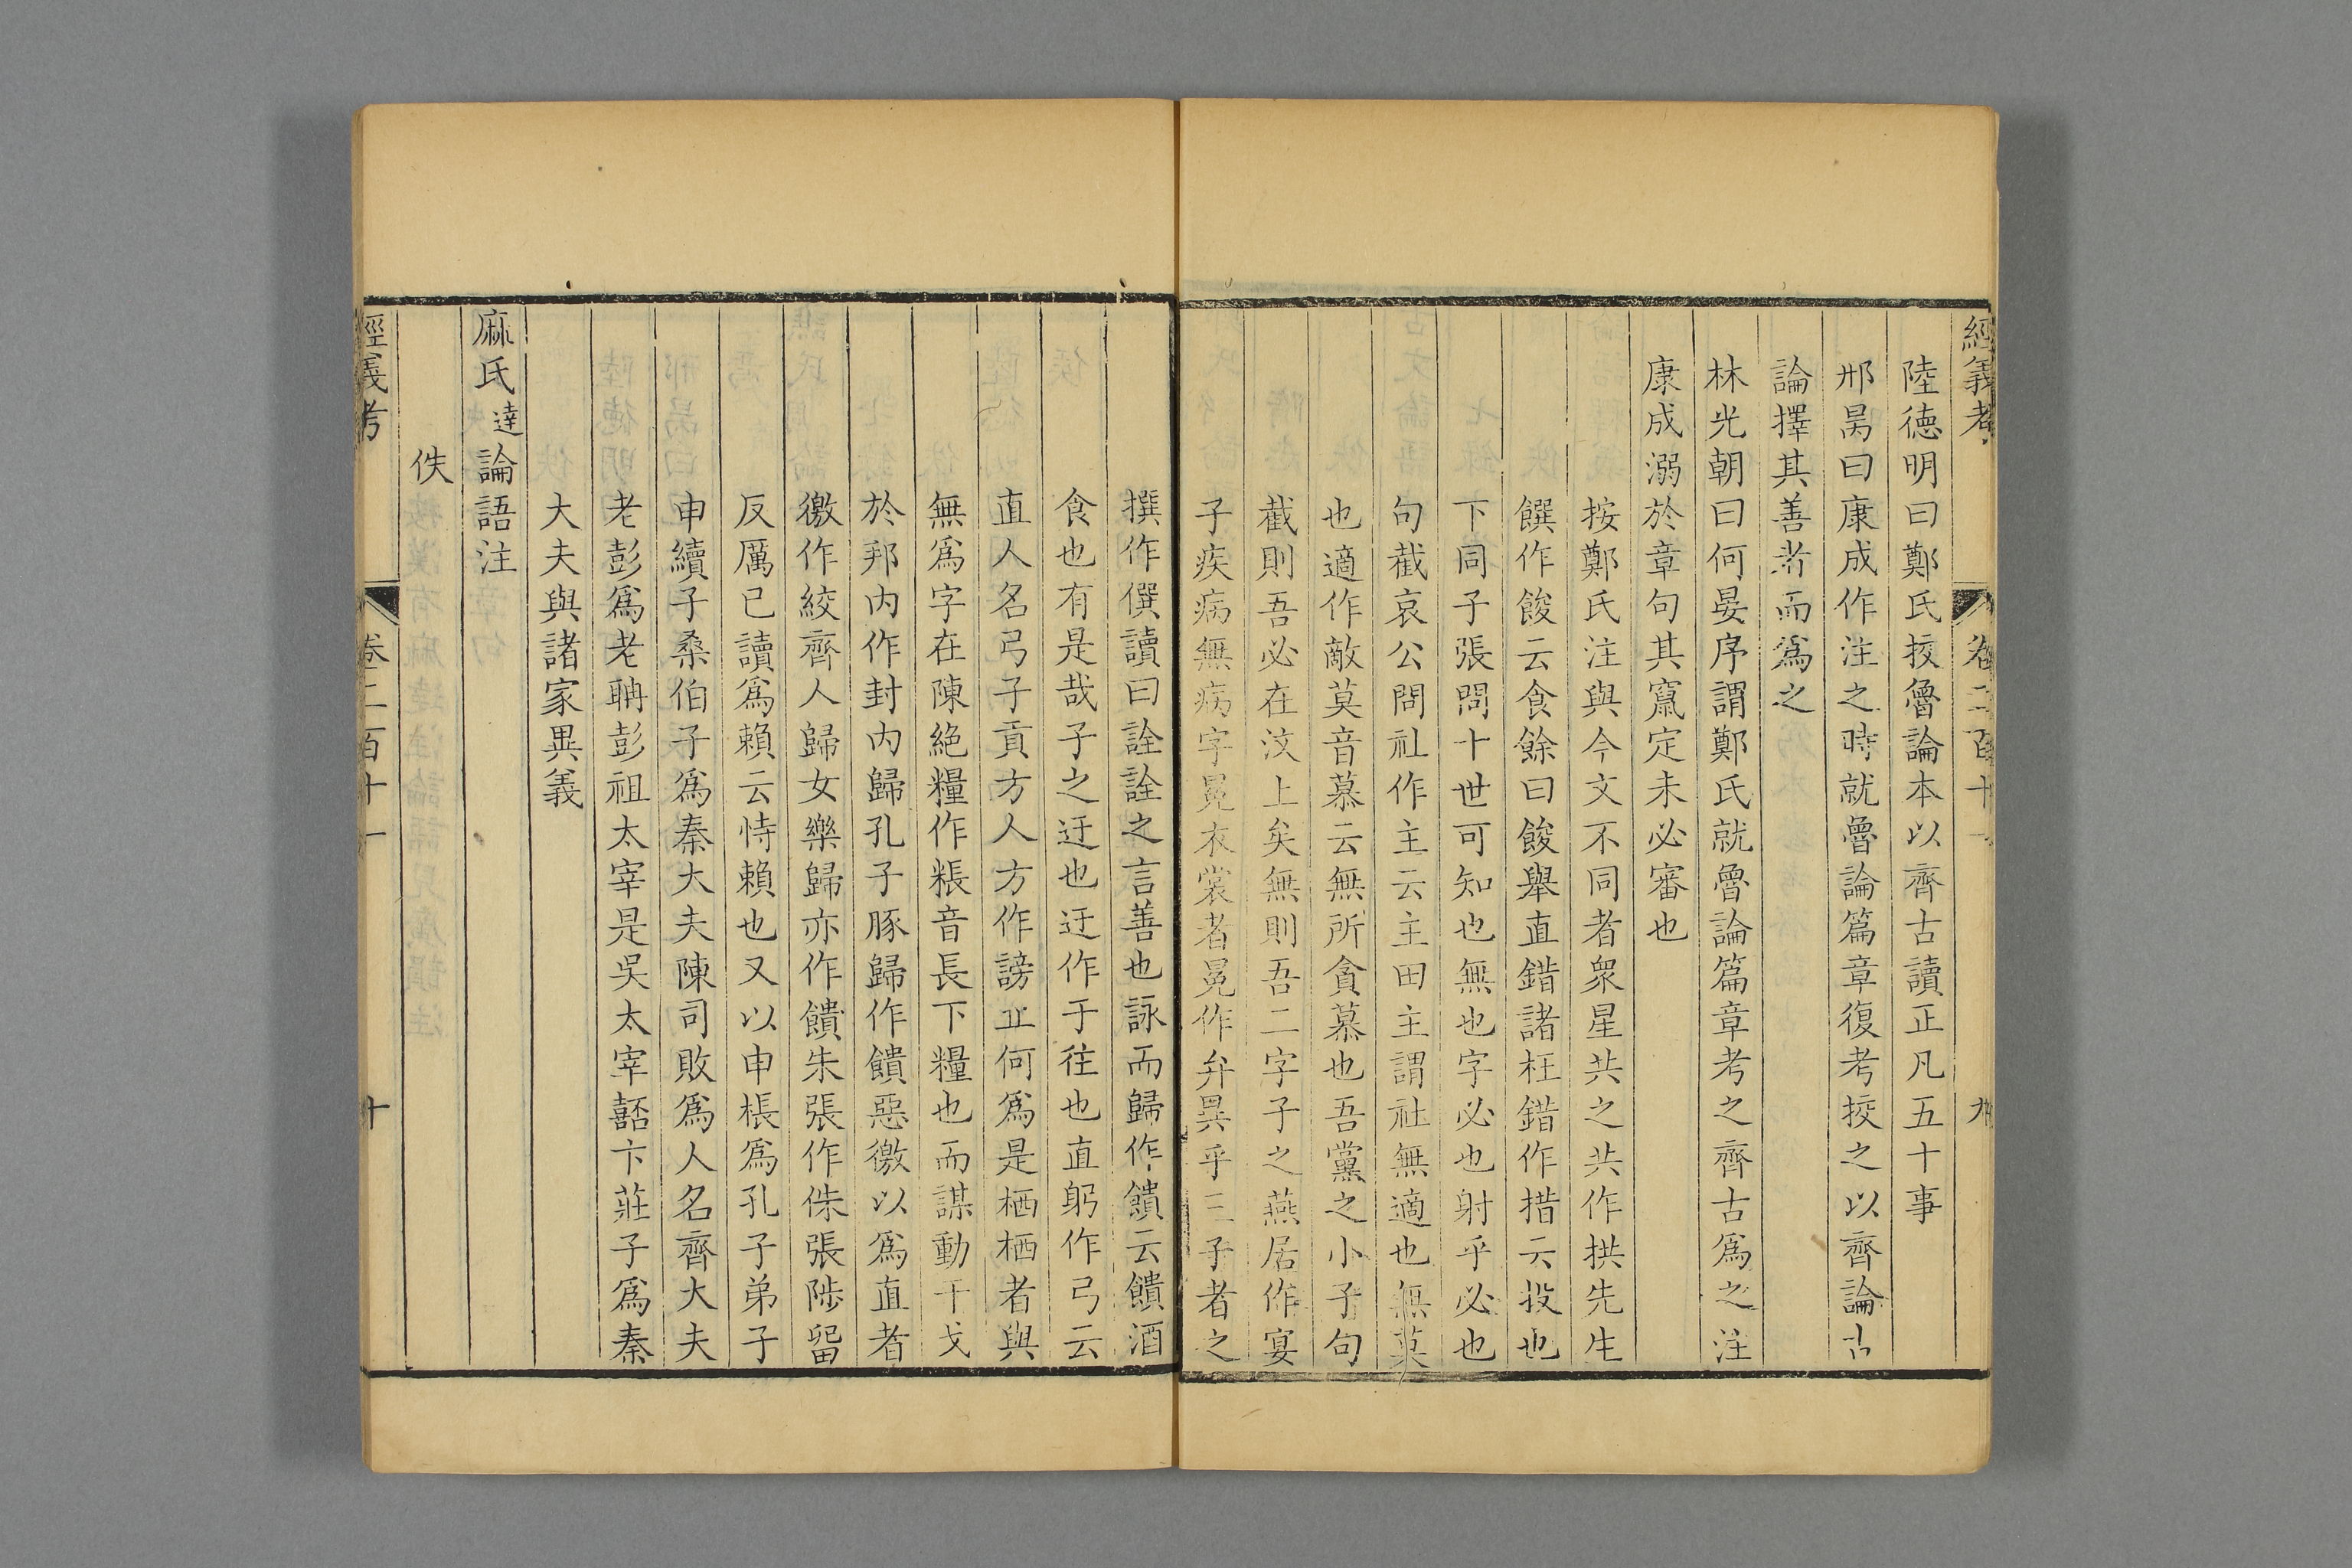 經義考 卷二百十一 九
陸德明曰鄭氏挍魯論本以齊古讀正凡五十事
邢昺曰康成作注之時就魯論篇章復考挍之以齊論古
論擇其善者而爲之
林光朝曰何晏序謂鄭氏就魯論篇章考之齊古爲之注
康成溺於章句其竄定未必審也
按鄭氏注與今文不同者衆星共之共作拱先生
饌作餕云食餘曰餕舉直錯諸枉錯作措云投也
下同子張問十世可知也無也字必也射乎必也
句截哀公問社作主云主田主謂社無適也無莫
也適作敵莫音慕云無所貪慕也吾黨之小子句
截則吾必在汶上矣無則吾二字子之燕居作宴
子疾病無病字冕衣裳者冕作弁異乎三子者之
撰作僎讀曰詮詮之言善也詠而歸作饋云饋酒
食也有是哉子之迂也迂作于往也直躬作弓云
直人名弓子貢方人方作謗丘何爲是栖栖者與
無爲字在陳絶糧作粻音長下糧也而謀動干戈
於邦内作封内歸孔子豚歸作饋惡徼以爲直者
徼作絞齊人歸女樂歸亦作饋朱張作侏張陟留
反厲已讀爲賴云恃賴也又以申棖爲孔子弟子
申續子桑伯子爲秦大夫陳司敗爲人名齊大夫
老彭爲老聃彭祖太宰是吳太宰嚭卞莊子爲秦
大夫與諸家異義
麻氏達論語注
佚
經義考 卷二百十一 十